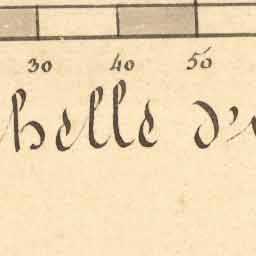 30 40 50
helle d'